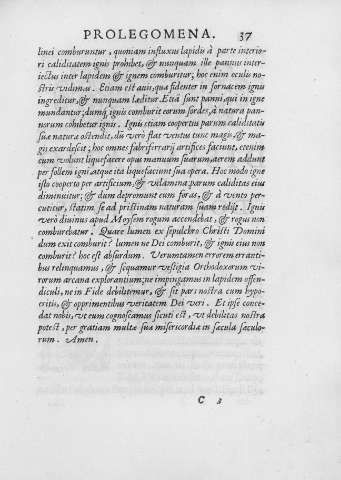 PROLEGOMENA. 37
linei comburuntur, quoniam influxus lapidis à parte interio-
ri caliditatem ignis prohibet, & nunquam ille pannus inter-
iectus inter lapidem & ignem comburitur, hoc enim oculis no-
stris vidimus. Etiam est auis, qua fidenter in fornacem ignis
ingreditur, & nunquam læditur. Etiā sunt panni, qui in igne
mundantur, dumq́; ignis comburit eorum sordes, à natura pan-
norum cohibetur ignis. Ignis etiam coopertus parum caliditatu
suæ naturæ ostendit, dū verò flat ventus tunc magis, & ma-
gis exardescit, hoc omnes fabri ferrarij artifices faciunt, etenim
cum volunt liquefacere opus manuum suarum, aerem addunt
per follem igni, atque ita liquefaciunt sua opera. Hoc modo igne
isto cooperto per artificium, & vilamina, parum caliditas eius
dimouitur, & dum depromunt eum foras, & à vento per-
cutitur, statim se ad pristinam naturam suam redijt. Ignis
verò diuinus apud Moysem rogum accendebat, & rogus non
comburebatur. Quare lumen ex sepulchro Christi Domini
dum exit comburit? lumen ne Dei comburit, & ignis eius non
comburit? hoc est absurdum. Veruntamen errorem erranti-
bus relinquamus, & sequamur vestigia Orthodoxorum vi-
rorum arcana explorantium; ne impingamus in lapidem offen-
diculi, ne in Fide debilitemur, & sit pars nostra cum hypo-
critis, & opprimentibus veritatem Dei veri. Et ipse conce-
dat nobis, vt eum cognoscamus sicuti est, vt debilitas nostra
potest, per gratiam multæ suæ misericordiæ in sæcula sæculo-
rum. Amen.
C 3